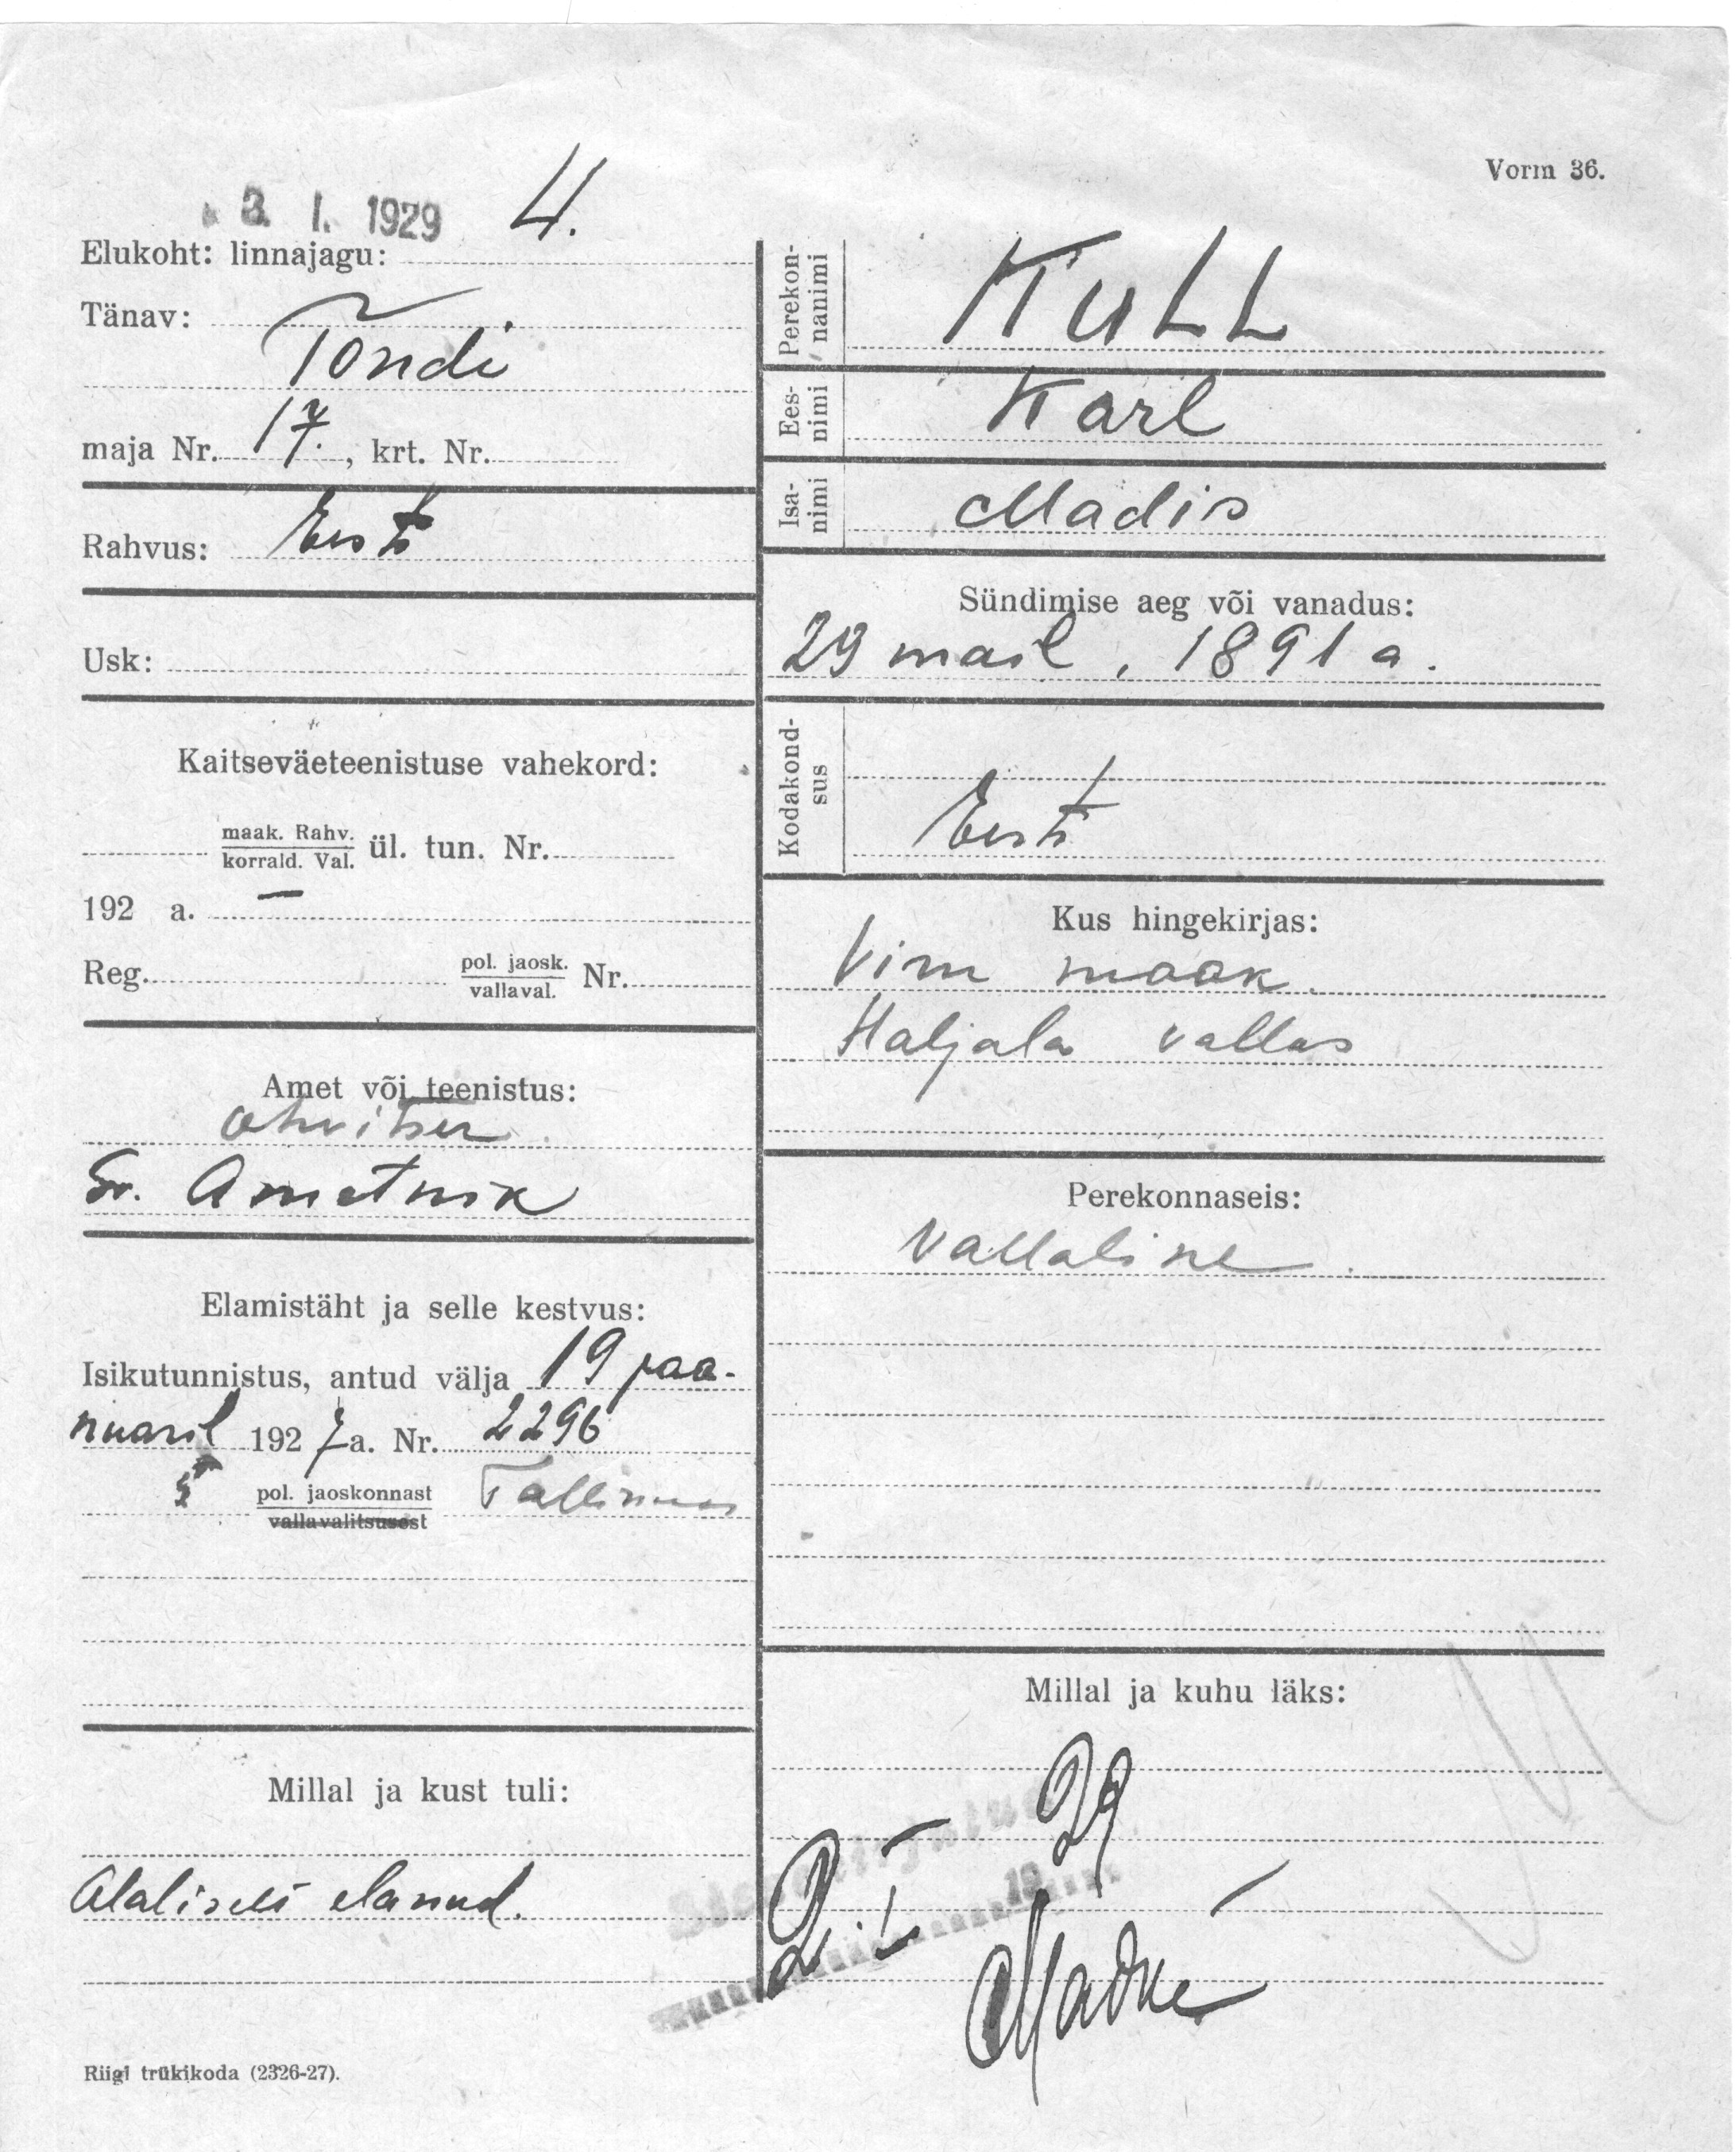 Vorm 36.
3. I. 1929 4.
Elukoht: linnajagu:
Tänav:
Tondi
maja Nr. 17., krt. Nr.
Rahvus: Eesti
Usk:
Kaitseväeteenistuse vahekord:
maak. Rahv.
korrald. Val. ül. tun. Nr.
192 a. —
Reg. pol. jaosk.
vallaval. Nr.
Amet või teenistus:
ohvitser
Sv. Ametnik
Elamistäht ja selle kestvus:
Isikutunnistus, antud välja 19 jaa-
nuaril 1927 a. Nr. 2296
5 pol. jaoskonnast Tallinnas
vallavalitsusest
Millal ja kust tuli:
Alaliselt elanud.
Riigi trükikoda (2326-27).
Perekon-
nanimi
KULL
Ees-
nimi
Karl
Isa-
nimi
Madis
Sündimise aeg või vanadus:
29 mail, 1891 a.
Kodakond-
sus
Eesti
Kus hingekirjas:
Viru maak.
Haljala vallas
Perekonnaseis:
Vallaline.
Millal ja kuhu läks:
2. I 29
19